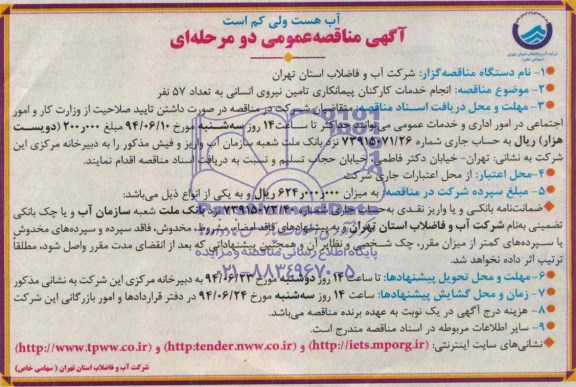 آب هست ولی کم است
آگهی مناقصه‌عمومی دو مرحله‌ای
شرکت آب و فاضلاب استان تهران
(سهامی خاص)
۱- نام دستگاه مناقصه‌گزار: شرکت آب و فاضلاب استان تهران
۲- موضوع مناقصه: انجام خدمات کارکنان پیمانکاری تامین نیروی انسانی به تعداد ۵۷ نفر
۳- مهلت و محل دریافت اسناد مناقصه: متقاضیان شرکت در مناقصه در صورت داشتن تایید صلاحیت از وزارت کار و امور
اجتماعی در امور اداری و خدمات عمومی می‌توانند حداکثر تا ساعت ۱۴ روز سه‌شنبه مورخ ۹۴/۰۶/۱۰ مبلغ ۲۰۰ر۰۰۰ (دویست
هزار) ریال به حساب جاری شماره ۷۳۹۱۵۰۷۱/۲۶ نزد بانک ملت شعبه سازمان آب واریز و فیش مذکور را به دبیرخانه مرکزی این
شرکت به نشانی: تهران- خیابان دکتر فاطمی، خیابان حجاب تسلیم و نسبت به دریافت اسناد مناقصه اقدام نمایند.
۴-محل اعتبار: از محل اعتبارات جاری شرکت
۵- مبلغ سپرده شرکت در مناقصه: به میزان ۶۲۴ر۰۰۰ر۰۰۰ ریال و به یکی از انواع ذیل می‌باشد:
ضمانت‌نامه بانکی و یا واریز نقدی به حساب جاری شماره ۷۳۹۱۵۰۷۲/۴۰ نزد بانک ملت شعبه سازمان آب و یا چک بانکی
تضمینی به‌نام شرکت آب و فاضلاب استان تهران و به پیشنهادهای فاقد امضاء، مشروط، مخدوش، فاقد سپرده و سپرده‌های مخدوش
یا سپرده‌های کمتر از میزان مقرر، چک شخصی و نظایر آن و همچنین پیشنهاداتی که بعد از انقضای مدت مقرر واصل شود، مطلقاً
ترتیب اثر داده نخواهد شد.
پایگاه اطلاع رسانی مناقصه و مزایده
۰۲۱-۸۸۳۴۹۶۷۰-۵
۶- مهلت و محل تحویل پیشنهادها: تا ساعت ۱۴ روز دوشنبه مورخ ۹۴/۰۶/۲۳ به دبیرخانه مرکزی این شرکت به نشانی مذکور
۷- زمان و محل گشایش پیشنهادها: ساعت ۱۴ روز سه‌شنبه مورخ ۹۴/۰۶/۲۴ در دفتر قراردادها و امور بازرگانی این شرکت
۸- هزینه درج آگهی در یک نوبت به عهده برنده مناقصه می‌باشد.
۹- سایر اطلاعات مربوطه در اسناد مناقصه مندرج است.
نشانی‌های سایت اینترنتی: (http://iets.mporg.ir) و (http:tender.nww.co.ir) و (http://www.tpww.co.ir)
شرکت آب و فاضلاب استان تهران ( سهامی خاص)